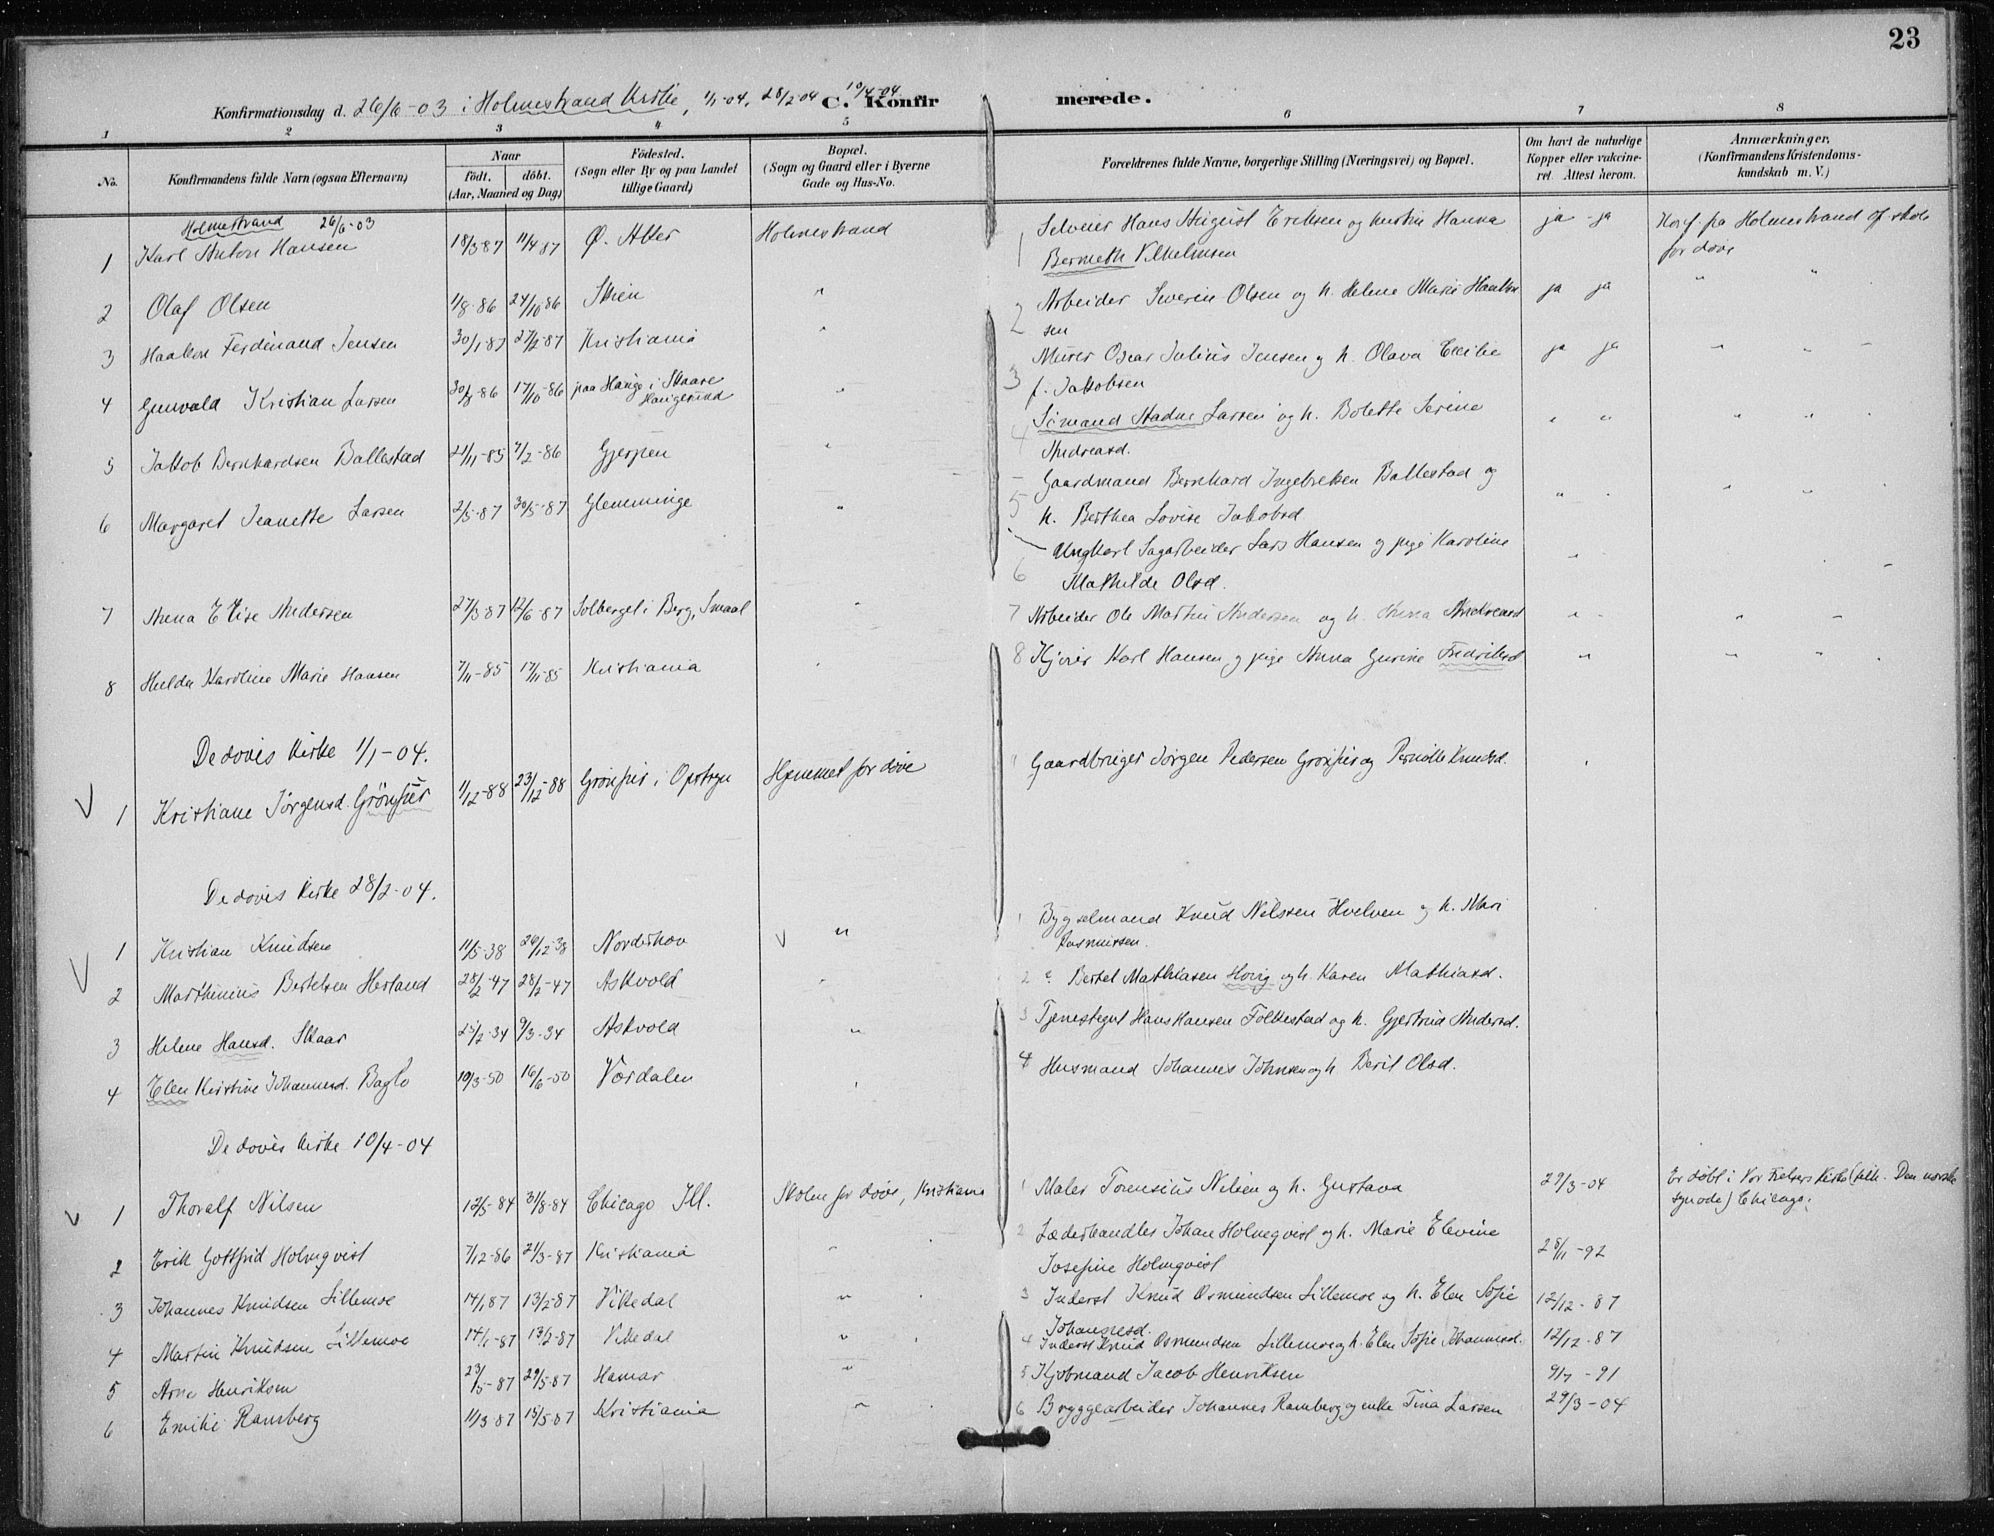 23
Konfirmationsdag d. 26/6-03 i Holmestrand Kirke, 1/1-04, 28/2-04 10/4-04 C. Konfirmerede.
1 2 3 4 5 6 7 8
No. Konfirmandens fulde Navn (ogsaa Efternavn) Naar födt. döbt. (Aar, Maaned og Dag) Födested. (Sogn eller By og paa Landet tillige Gaard) Bopæl. (Sogn og Gaard eller i Byerne Gade og Hus-No. Forældrenes fulde Navne, borgerlige Stilling (Næringsvei) og Bopæl. Om havt de naturlige Kopper eller vakcineret. Attest herom. Anmærkninger, (Konfirmandens Kristendomskundskab m. V.)
Holmestrand 26/6-03
1 Karl Anton Hansen 18/3 87 11/4 87 Ø. Aker Holmestrand 1 Selveier Hans August Eriksen og Kristine Hanna ja - ja Konf. fra Holmestrand off. skole
Berneth Vilhelmsen for døve
2 Olaf Olsen 1/8-86 24/10 86 Skien " 2 Arbeider Severin Olsen og h. Helene Marie Haakon ja ja " "
sen
3 Haakon Ferdinand Jensen 30/1 87 27/2-87 Kristiania " 3 Murer Oscar Julius Jensen og h. Olava Cecilie ja ja " " "
f. Jakobsen
4 Gunvald Kristian Larsen 30/8-86 17/10-86 paa Hauge i Skaare Haugesund " 4 Sömand Stadne Larsen og h. Bolette Serine " " " "
Andreasd.
5 Jakob Bernhardsen Ballestad 21/11-85 7/2-86 Gjerpen " 5 Gaardmand Bernhard Ingebretsen Ballestad og
h. Berthea Lovise Jakobsd " "
6 Margaret Jeanette Larsen 2/5-87 30/5-87 Glemminge " 6 Ungkarl Sagarbeider Lars Hansen og pige Karoline "
Mathilde Olsd.
7 Anna Elise Andersen 27/3 87 12/6-87 Solberget i Berg, Smaal " 7 Arbeider Ole Martin Andersen og h. Anna Andreasd " " "
8 Hulda Karoline Marie Hansen 7/11-85 17/11-85 Kristiania " 8 Kjörer Karl Hansen og pige Anna Gurine Fredriksd " " "
De döves Kirke 1/1-04.
1 Kristiane Jörgensd. Grönfur 1/12-88 23/12-88 Grönfur i Hjemmet for döve 1 Gaardbruger Jörgen Pedersen Gronfur og Pernille Knudsd.
De döves Kirke 28/2-04.
1 Kristian Knudsen 11/5-38 26/12-38 Norderhov " 1 Bygselmand Knud Nilssen Hvelven og h. Mari
Rasmussen.
2 Marthinius Bertelsen Herland 28/2-47 28/2-47 Askvold " 2 Bertel Mathiasen Hovig og h. Karen Mathiasd.
3 Helene Hansd. Skaar 25/2-34 9/3-34 Askvold " 3 Tjenestegut Hans Hansen Folkestad og h. Gjertrud Andersd.
4 Elen Kirstine Johannesd. Baglo 10/3-50 16/6-50 Værdalen " 4 Husmand Johannes Johnsen og h. Berit Olsd.
De döves Kirke 10/4-04
1 Thoralf Nilsen 12/5-84 31/8-84 Chicago Ill. Skolen for döve, Kristiania 1 Maler Torensius Nilsen og h. Gustava 29/3-04 Er döbt i Vor Frelsers Kirke Den norske
synode) Chicago.
2 Erik Gottfrid Holmqvist 7/12-86 21/3-87 Kristiania " 2 Læderhandler Johan Holmqvist og h. Marie Elevine 28/11-92
Josefine Holmqvist
3 Johannes Knudsen Lillemoe 14/1 87 13/2-87 Vikedal " 3 Inderst Knud Osmundsen Lillemoe og h. Elen Sofie 12/12-87
Johannesd.
4 Martin Knudsen Lillemoe 14/1-87 13/2-87 Vikedal " 4 Inderst Knud Osmundsen Lillemoe og h. Elen Sofie Johannesd. 12/12-87
5 Arne Henriksen 23/5-87 29/5-87 Hamar " 5 Kjöbmand Jacob Henriksen 9/7-91
6 Emilie Ramberg 11/3 87 15/5-87 Kristiania " 6 Bryggearbeider Johannes Ramberg og enke Tina Larsen 29/3-04